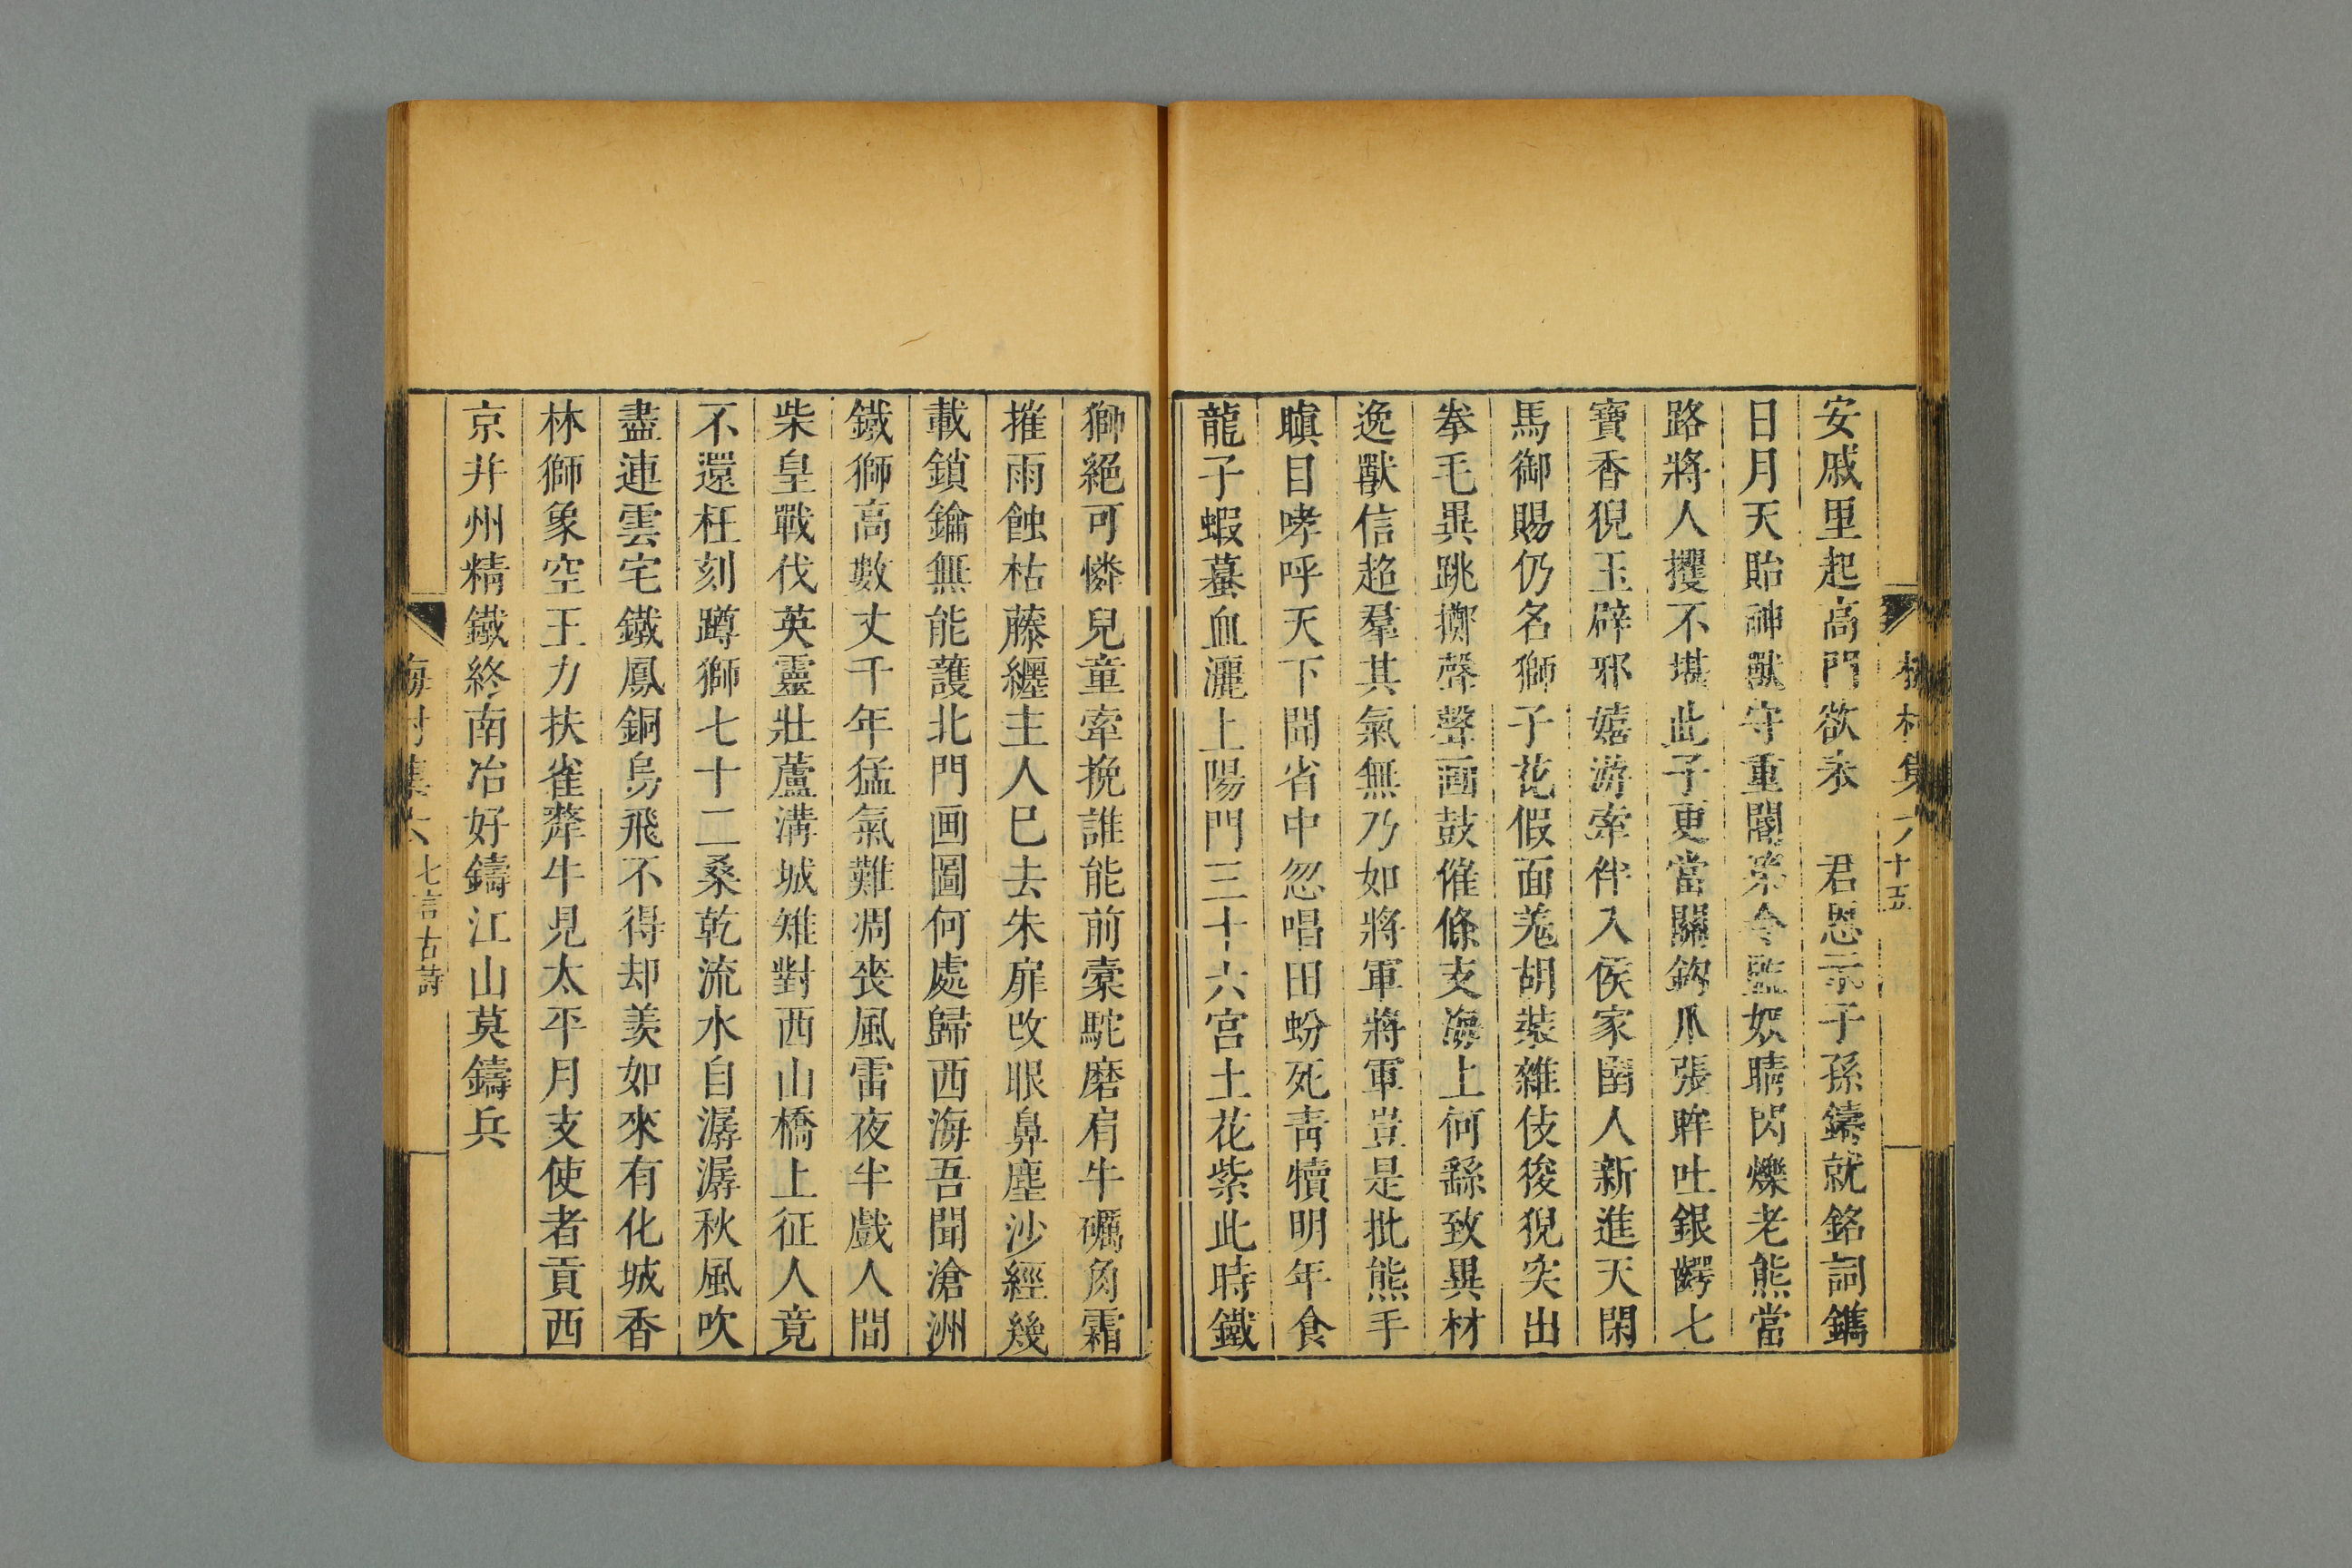 安戚里起高門欲永 君恩示子孫鑄就銘詞鐫
日月天貽神獸守重閽第令監奴睛閃爍老熊當
路將人攫不堪此子更當關鉤爪張眸吐銀齶七
寶香猊玉辟邪嬉游牽伴入侯家圉人新進天閑
馬御賜仍名獅子花假面羌胡裝雜伎狻猊突出
拳毛異跳擲聲聲画鼓催條支海上何繇致異材
逸獸信超羣其氣無乃如將軍將軍豈是批熊手
瞋目哮呼天下聞省中忽唱田蚡死青犢明年食
龍子蝦蟇血灑上陽門三十六宫土花紫此時鐵
獅絕可憐兒童牽挽誰能前橐駝磨肩牛礪角霜
摧雨蝕枯藤纏主人已去朱扉改眼鼻塵沙經幾
載鎖鑰無能護北門画圖何處歸西海吾聞滄洲
鐵獅高數丈千年猛氣難凋喪風雷夜半戲人間
柴皇戰伐英靈壯蘆溝城雉對西山橋上征人竟
不還枉刻蹲獅七十二桑乾流水自潺潺秋風吹
盡連雲宅鐵鳳銅烏飛不得却羨如來有化城香
林獅象空王力扶雀犛牛見太平月支使者貢西
京并州精鐵終南冶好鑄江山莫鑄兵
七言古詩